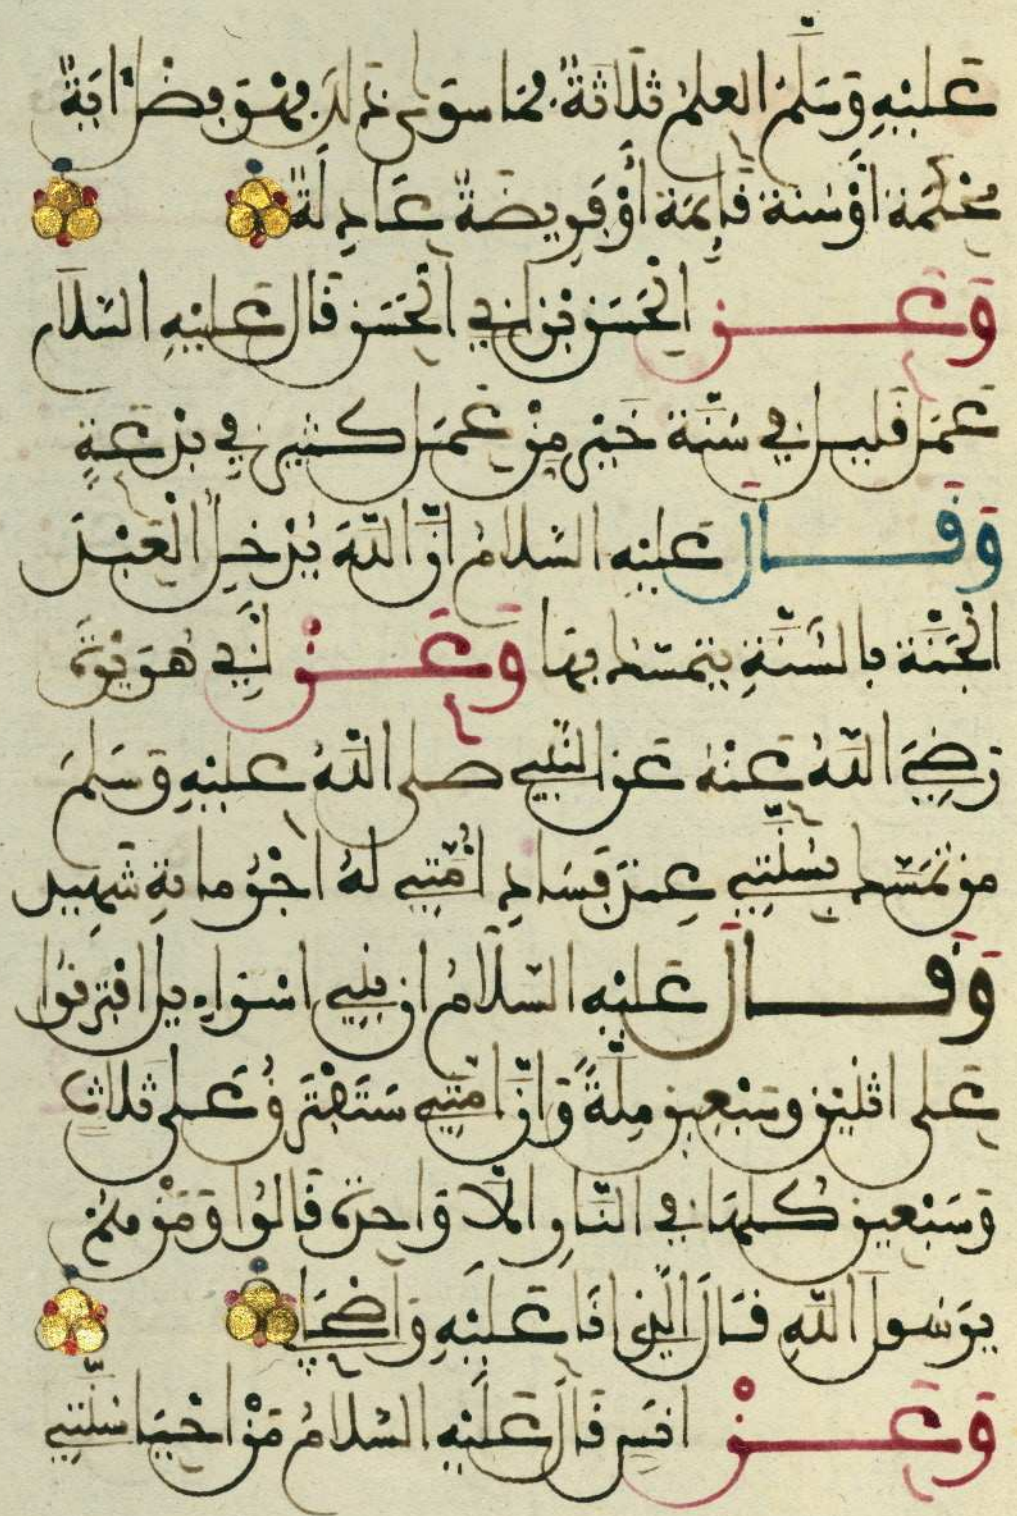 عَلَيْهِ وَسَلَّمَ العِلْمُ ثَلَاثَةٌ فَمَا سِوَى ذَلِكَ فَهْوَ فَضْلٌ ايَةٌ
مُحْكَمَة أَوْ سُنَّة قَايِمَة أَوْ فَرِيضَةٌ عَادِلَةٌ
وَعَنِ الْحَسَنِ بْنِ أَبِي الْحَسَنِ قَالَ عَلَيْهِ السَّلَام
عَمَل قَلِيل فِي سُنَّة خَيْر مِنْ عَمَل كَثِير فِي بِدْعَةٍ
وَقَالَ عَلَيْهِ السَّلَامُ اِنَّ اللَّهَ يُدْخِلُ الْعَبْدَ
الْجَنَّةَ بِالسُّنَّةِ يتمسّك بِهَا وَعَنْ أَبِي هُرَيْرَة
رَضِيَ اللَّهُ عَنْهُ عَنِ النَّبِيِّ صَلَّى اللَّهُ عَلَيْهِ وَسَلَّمَ
مَن تَمَسَّك بِسُنَّتِي عِندَ فَسَادِ اُمَّتِي لَهُ اَجْرُ مِايةِ شَهِيد
وَقَالَ عَلَيْهِ السَّلَامُ ان بَنِي اسْرَاءِيل افْتَرَقُوا
عَلَى اثْنَيْنِ وَسَبْعِينَ مِلَّةً وَاِنَّ امَّتِي سَتَفْتَرِقُ عَلَى ثَلَاثٍ
وَسَبْعِين كُلّهَا فِي النَّارِ الَّا وَاحِدَة قَالُوا وَمَنْ هُمْ
يَرَسُول اللَّهِ قَالَ الَّذِي اَنَا عَلَيْهِ وَاَصْحَابِي
وَعَنْ اَنَسٍ قَالَ عَلَيْهِ السَّلَامُ مَنْ اَحْيَا سُنَّتِي